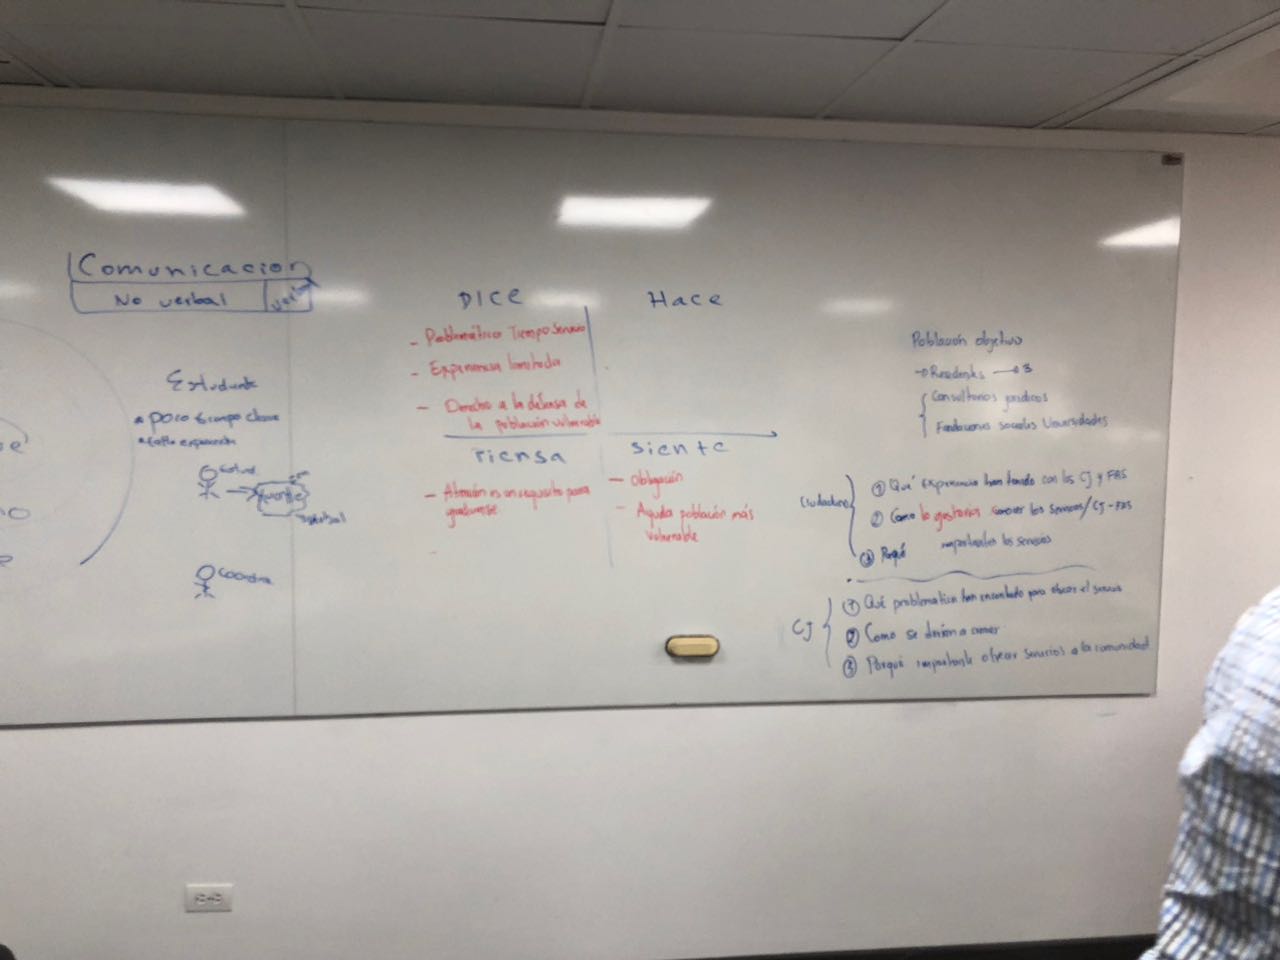 Comunicacion
No verbal
Verbal
Estudiante
poco tiempo clase
DICE
- Problemático Tiempo Servicio
- Experiencia limitada
- Derecho a la defensa de
la población vulnerable
Hace
Piensa
- Atención es un requisito para
graduarse
Siente
- Obligación
- Ayuda población más
vulnerable
Población objetivo
→ Residentes → 3
Consultorios jurídicos
Fundaciones sociales Universidades
Ciudadano
① Qué experiencia han tenido con los CJ y FAS
② Como le gustaría conocer los servicios/CJ-FAS
③ Porqué importantes los servicios
CJ
① Qué problematica han encontrado para ofrecer el servicio
② Como se darían a conocer
③ Porqué importante ofrecer servicios a la comunidad